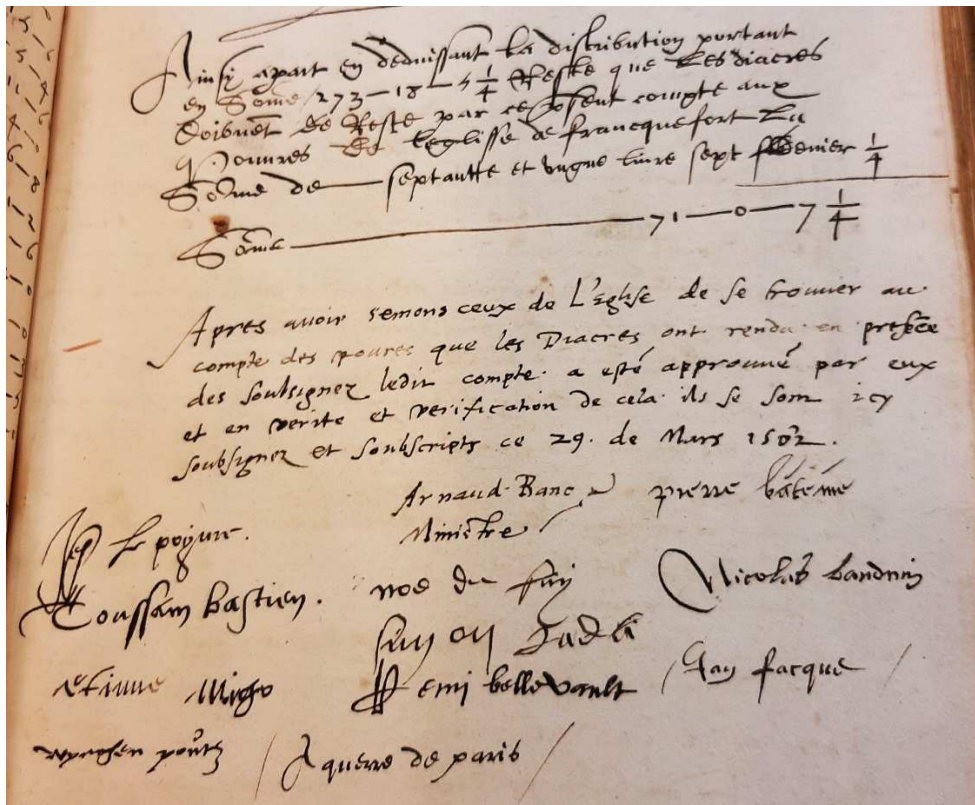 Ainsy apart en deduissant la distribution portant
en Some 273—18—5 1/4 Reste que les diacres
doibvet de Reste par ce pset compte aux
Pouvres de leglisse de francquefort La
Some de — septautte et ungne livre sept denier 1/4
Some — 71—0—7 1/4
Apres avoir semons ceux de L'Eglise de se trouver au
compte des poures que les Diacres ont rendu en presēce
des soubsignez ledit compte a esté approuvé par eux
et en verite et verification de cela ils se sont icy
soubsignez et soubscripts ce 29. de Mars
Arnaud Banc pierre batéme
Ministre
le poijvre.
Toussain bastien. noe du faij Nicolas bauduin
simon
etinne Migo Remi bellevault Jan facque
de paris